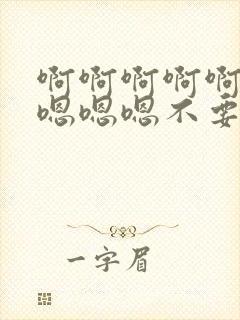 啊啊啊啊啊
嗯嗯嗯不要
一字眉